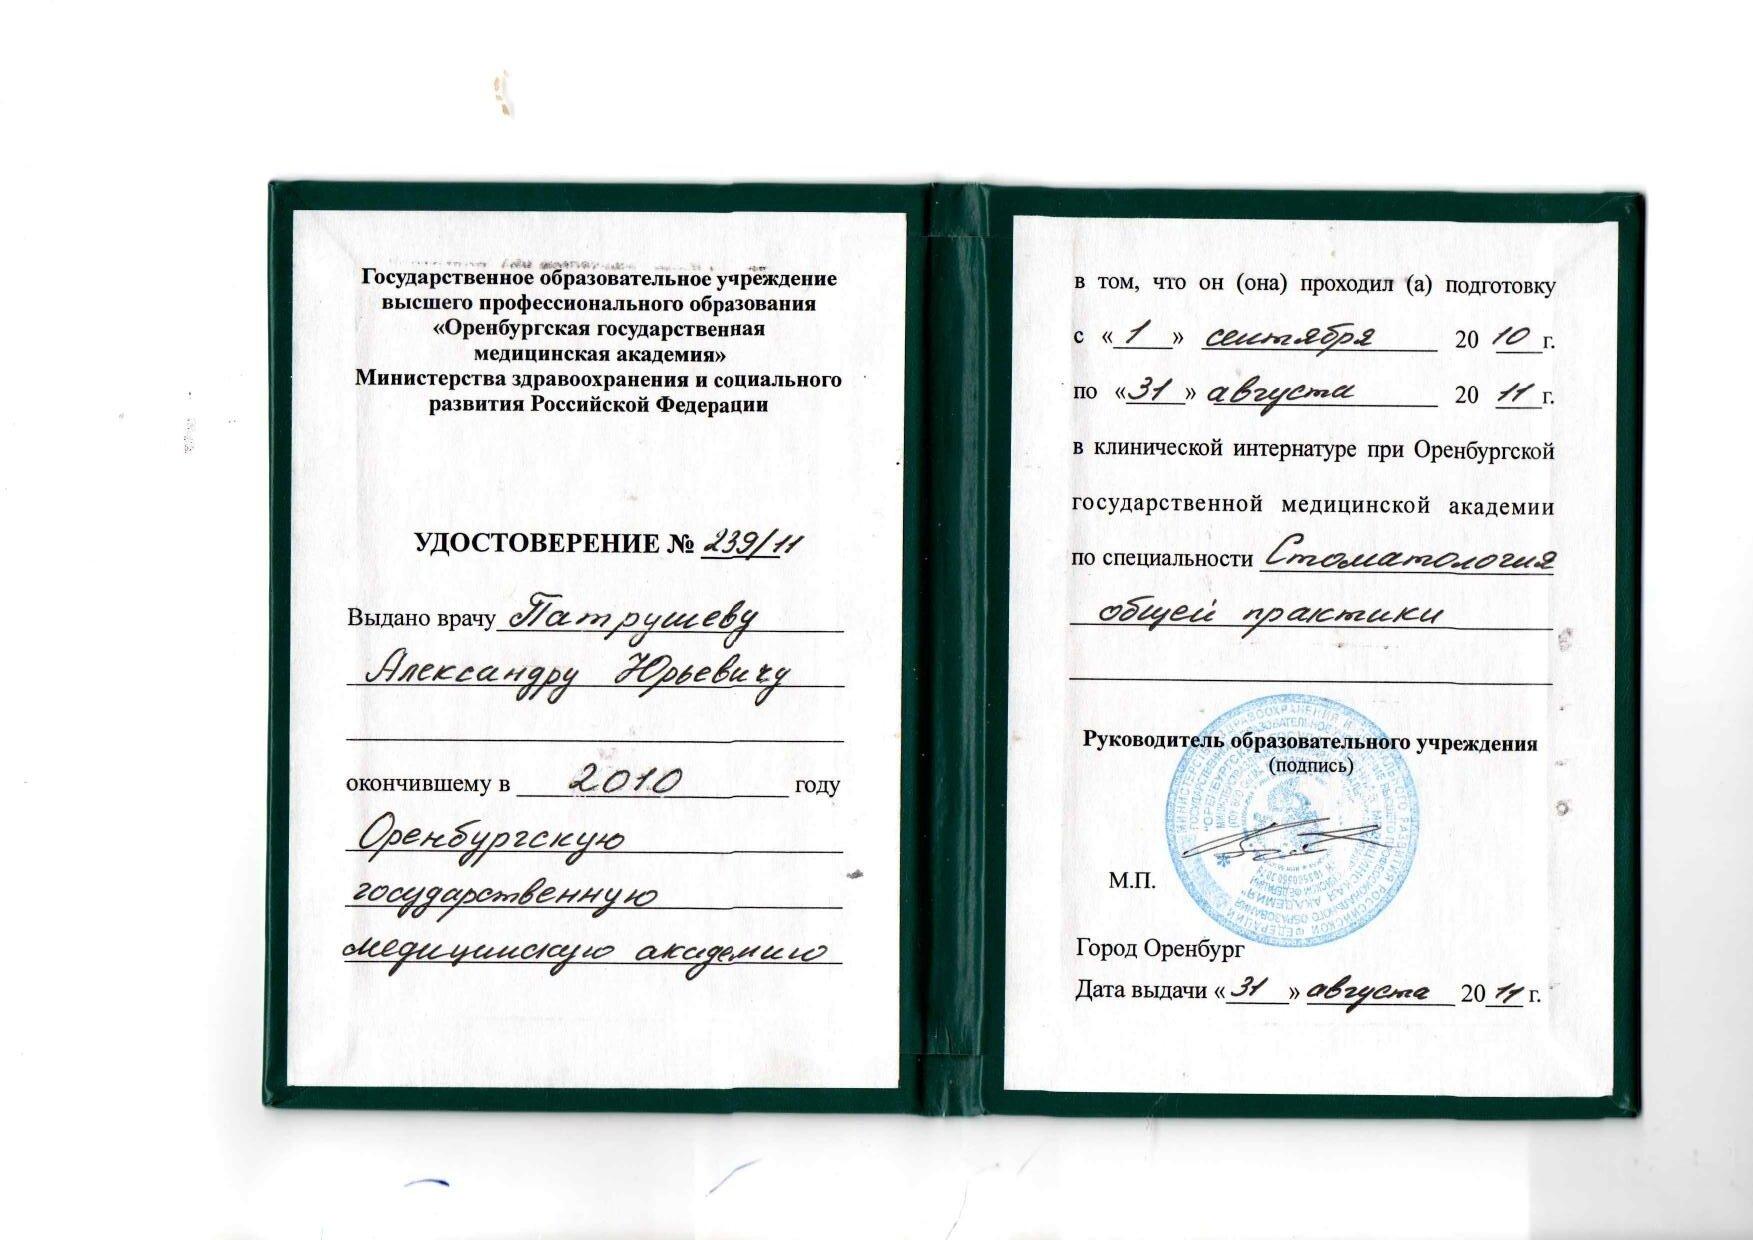 Государственное образовательное учреждение
высшего профессионального образования
«Оренбургская государственная
медицинская академия»
Министерства здравоохранения и социального
развития Российской Федерации
УДОСТОВЕРЕНИЕ № 239/11
Выдано врачу Патрушеву
Александру Юрьевичу
окончившему в 2010 году
Оренбургскую
государственную
медицинскую академию
в том, что он (она) проходил (а) подготовку
с «1» сентября 2010 г.
по «31» августа 2011 г.
в клинической интернатуре при Оренбургской
государственной медицинской академии
по специальности Стоматология
общей практики
Руководитель образовательного учреждения
(подпись)
М.П.
Город Оренбург
Дата выдачи «31» августа 2011 г.